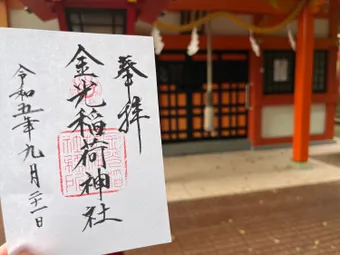 奉拝
金光稲荷神社
令和五年九月二十一日